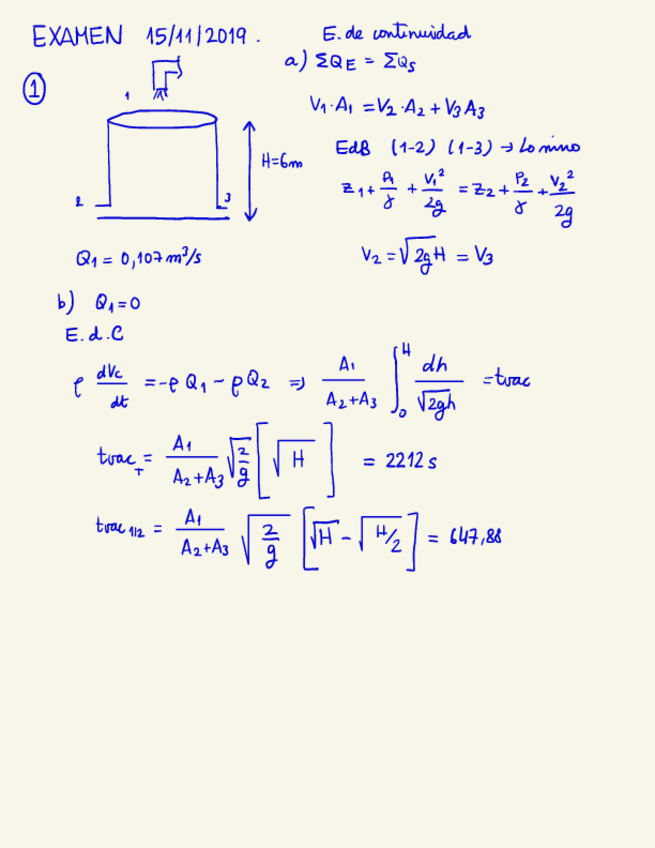 EXAMEN 15/11/2019.
E. de continuidad
①
a) ΣQE = ΣQS
1
V1·A1 = V2·A2 + V3A3
H=6m
EdB (1-2) (1-3) → Lo mismo
Z1 + P1/γ + V1²/2g = Z2 + P2/γ + V2²/2g
2
3
Q1 = 0,107 m³/s
V2 = √2gH = V3
b) Q1=0
E.d.C
ρ dVc/dt = -ρQ1 - ρQ2 ⇒ A1/(A2+A3) ∫₀ᴴ dh/√2gh = tvac
tvacT = A1/(A2+A3) √2/g [√H] = 2212 s
tvac 1/2 = A1/(A2+A3) √2/g [√H - √H/2] = 647,88